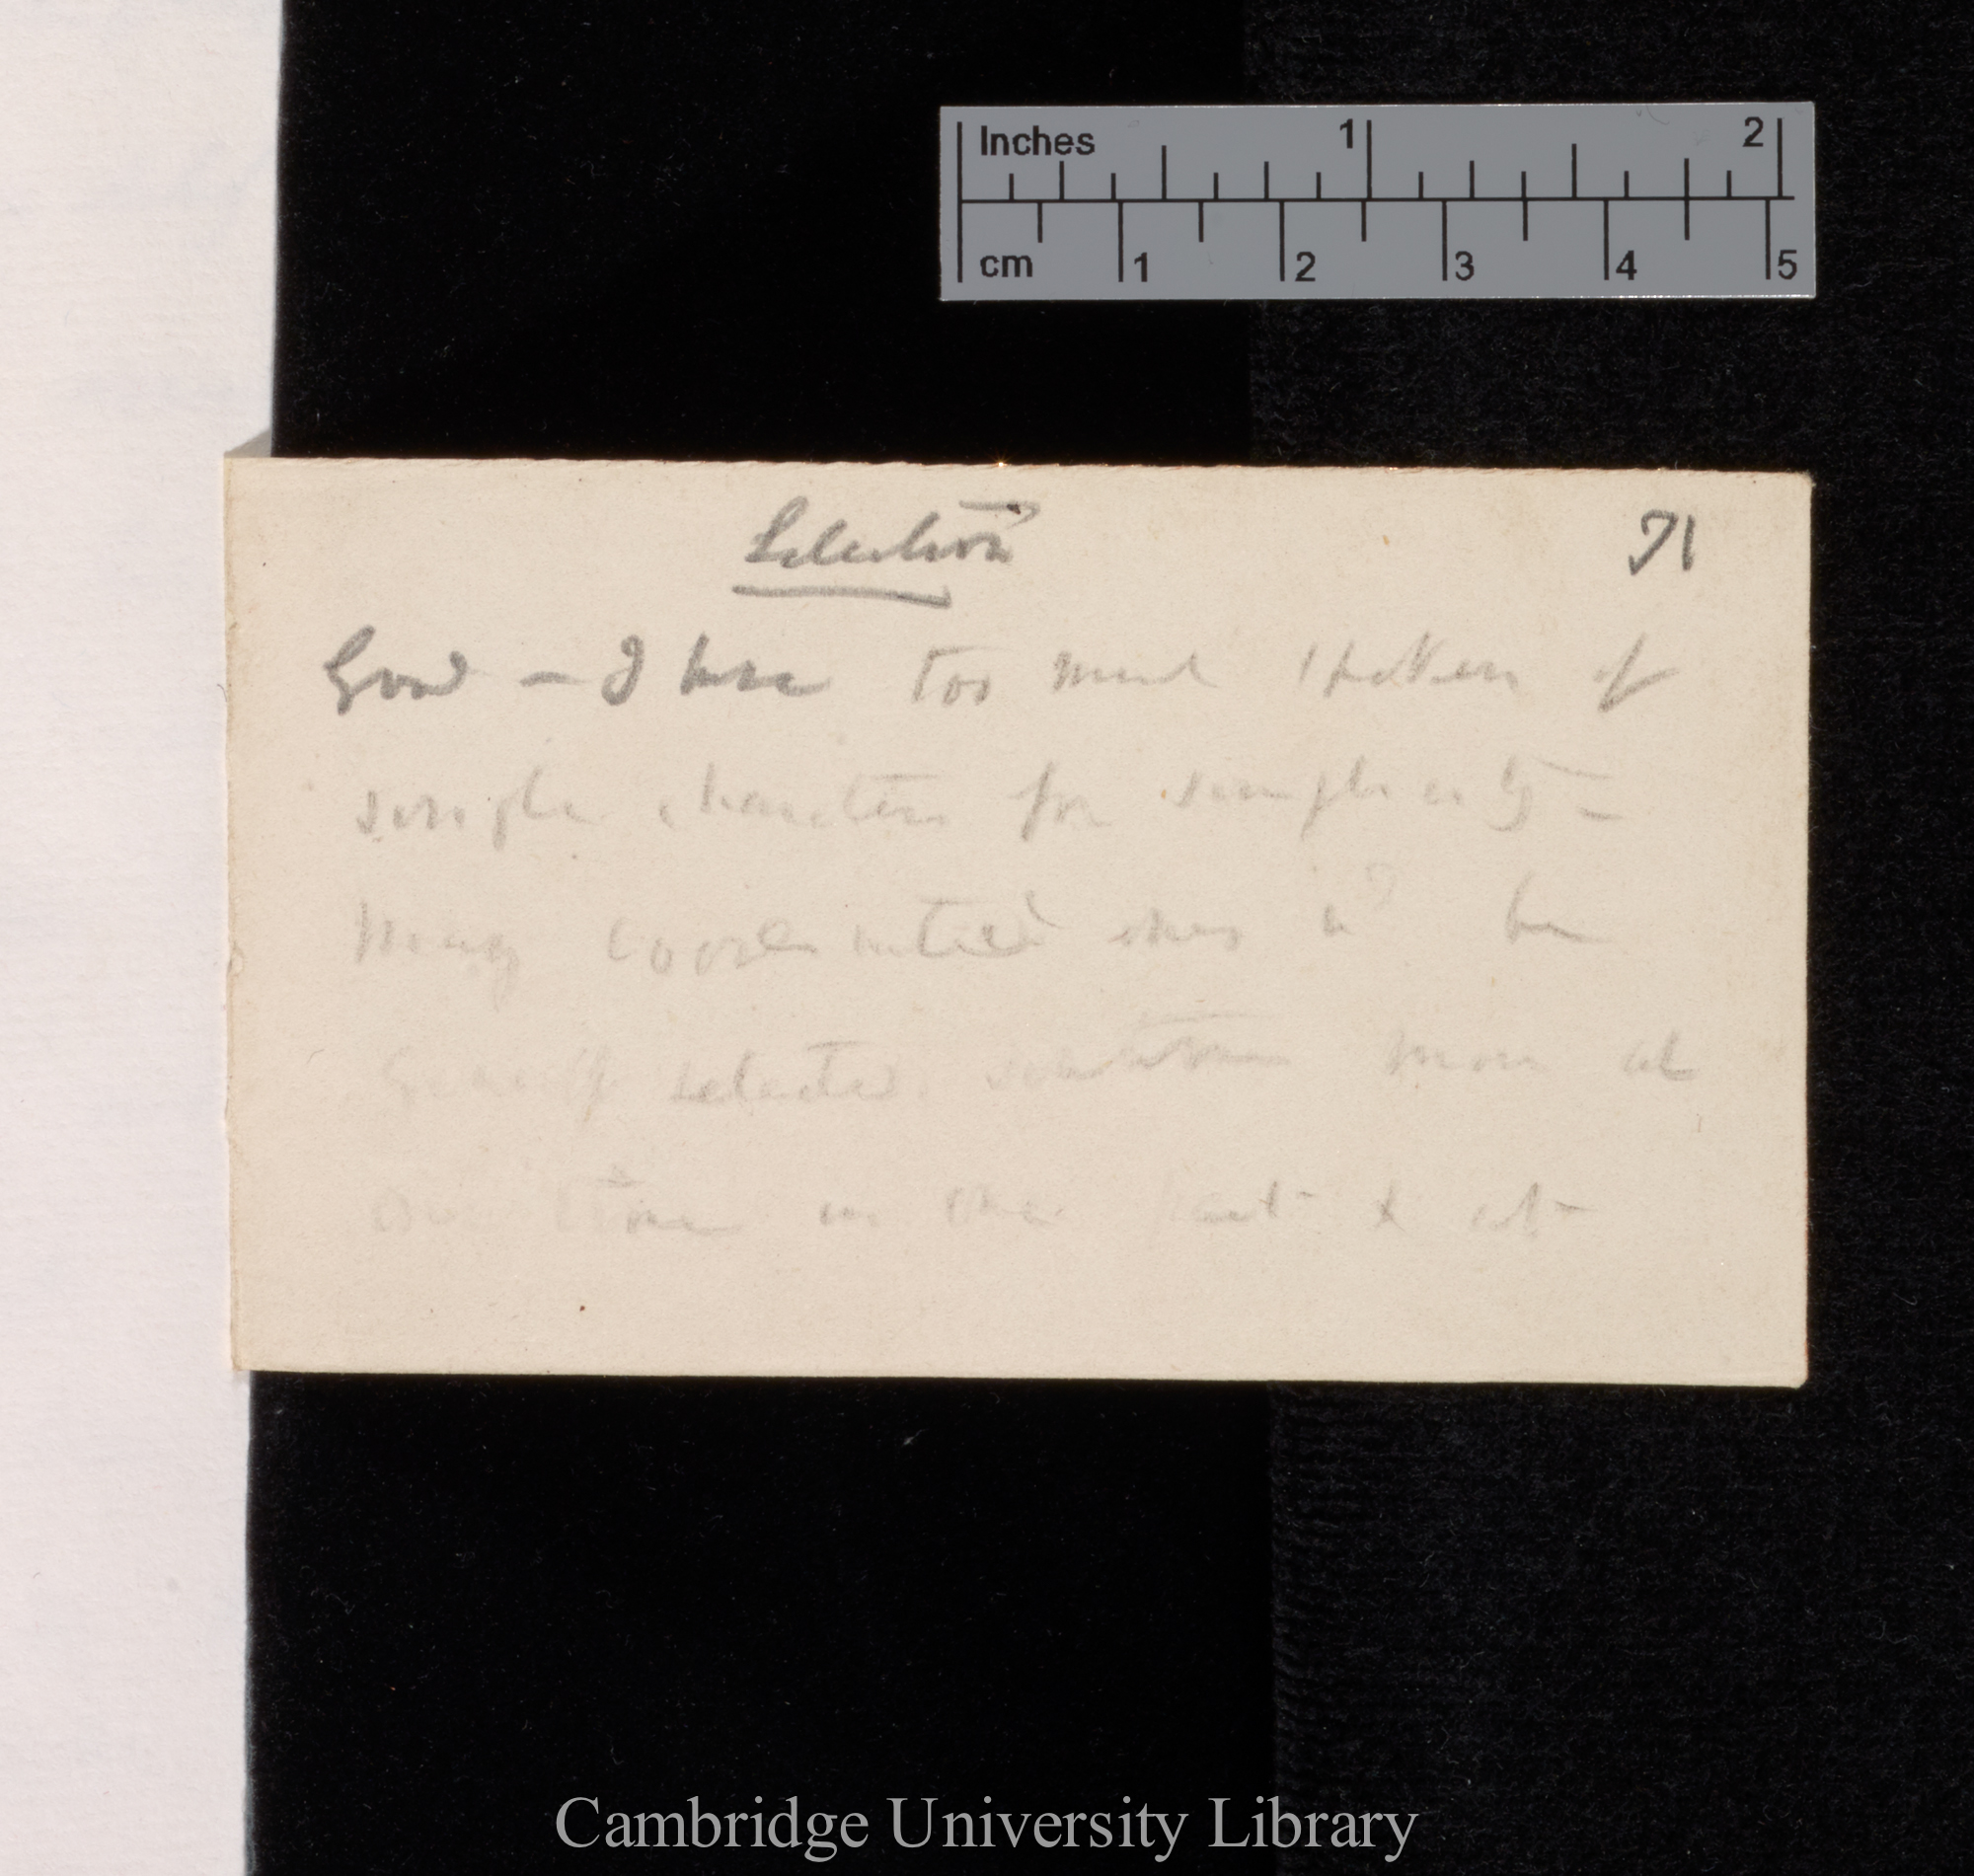 Inches 1 2
cm 1 2 3 4 5
Selection 71
Good — I have too much spoken of
single characters for simplicity —
Many coordinated ones wd be
generally selected, sometimes more at
one time in one part & at
Cambridge University Library